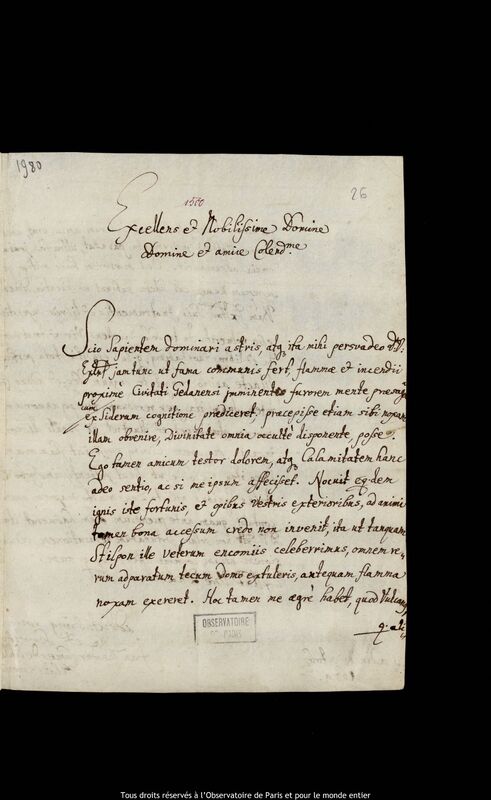 1980
26
1500
Excellens et Nobilissime Domine
Domine et amice Colendme
Scio Sapientem dominari astris, atq ita mihi persvadeo
jamtunc ut fama communis fert, flammæ et incendii
proximè Civitati Gedanensi imminentis furorem mente
cum ex Siderum cognitione prædiceret, præcepisse etiam sibi noxam
illam obvenire, Divinitate omnia occultè disponente, posse.
Ego tamen amicum testor dolorem, atq Calamitatem hanc
adeo sentio, ac si me ipsum affecisset. Nocuit eqdem
ignis iste fortunis, et opibus Vestris exterioribus, ad animi
tamen bona accessum credo non invenit, ita ut tanquam
Stilpon ille veterum encomiis celeberrimus, omnem re-
rum adparatum tecum domo extuleris, antequam flamma
noxam exereret. Hoc tamen me ægrè habet, quod Vulcang
OBSERVATOIRE
DE PARIS
Tous droits réservés à l'Observatoire de Paris et pour le monde entier